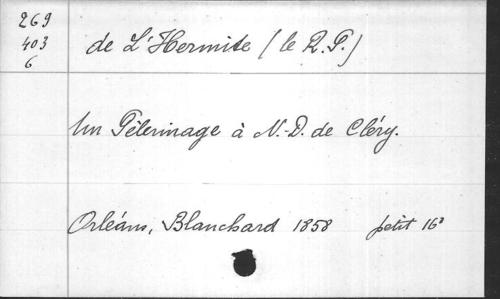 269
403
6
de L'Hermite (le R. P.)
Un Pèlerinage à N.-D. de Cléry.
Orléans, Blanchard 1858 petit 16°